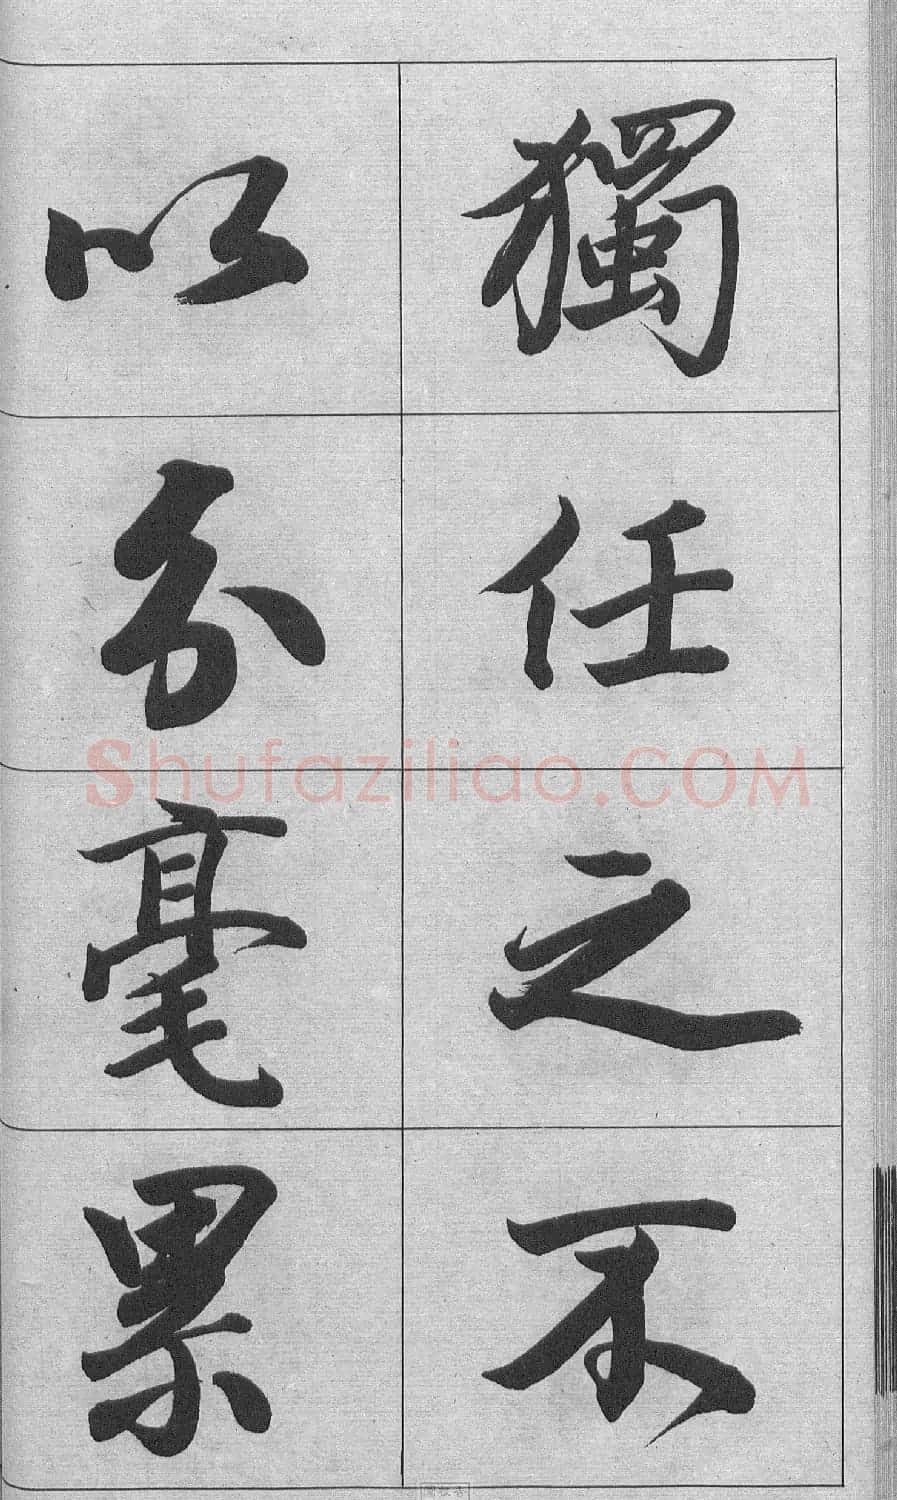 獨任之不
以分毫累
Shufaziliao.COM